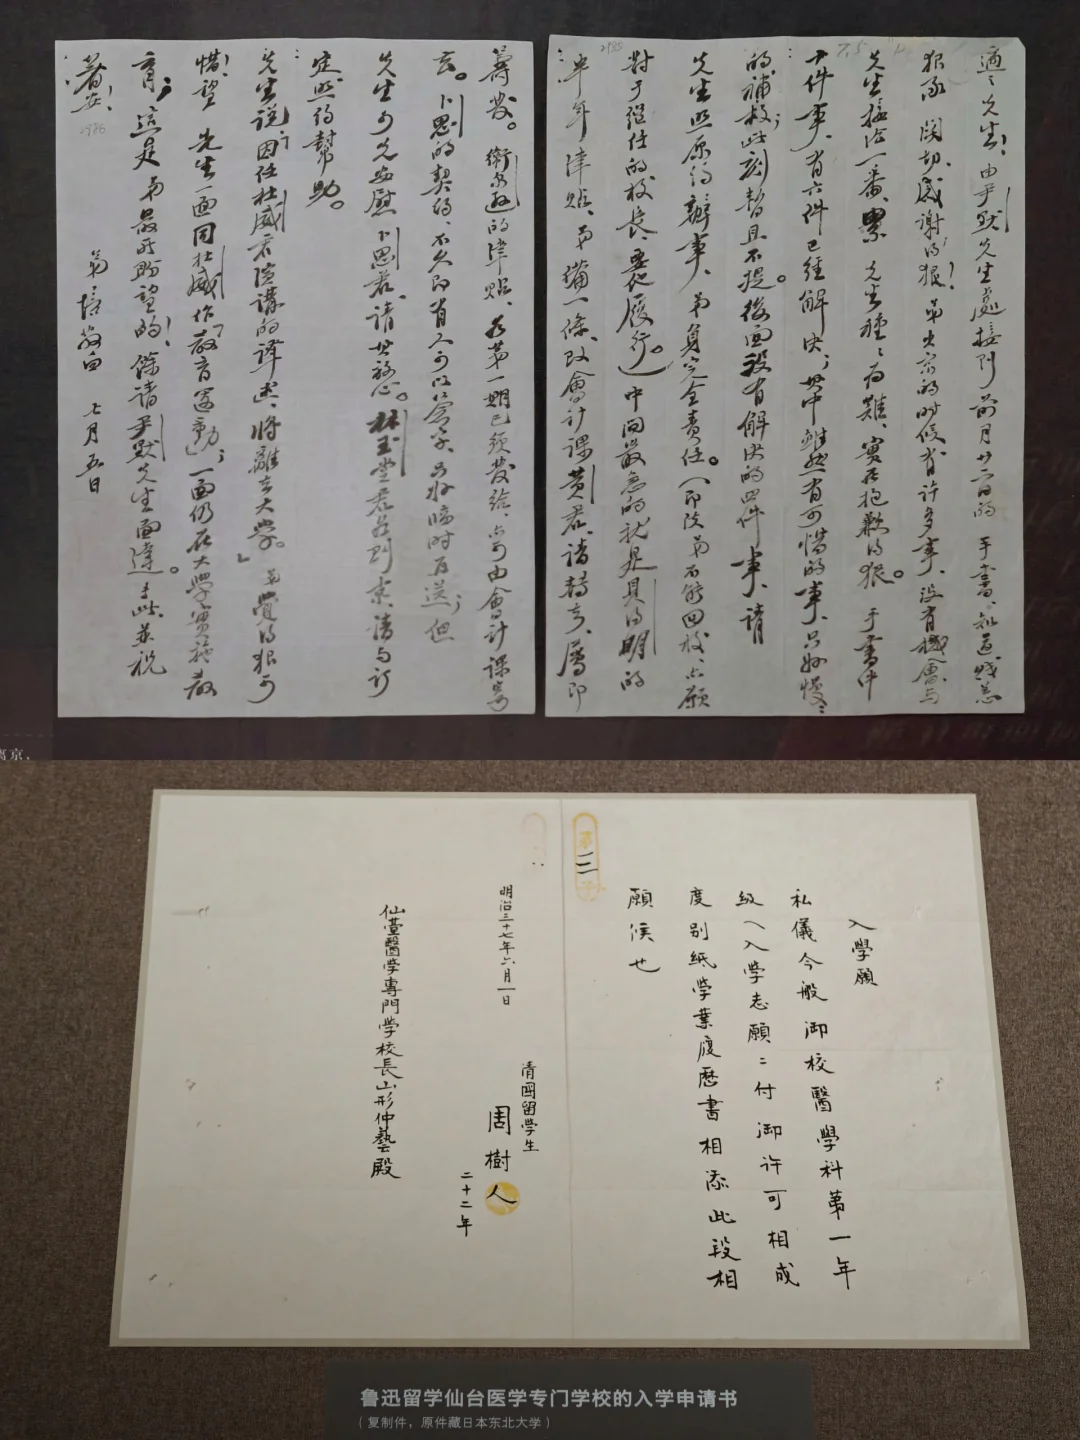 適之先生！由尹默先生處接到 前月廿二日的 手書、知道賤恙
狠承 関切、感謝的狠！弟出京的时候、有许多事、没有機會与
先生接洽一番、累 先生種種為難、實在抱歉的狠。 手書中
十件事、有六件已經解决；其中雖然有可惜的事、只好慢慢
的補救；此刻暫且不提。後面没有解决的四件事、請
先生照原約辦事、弟負完全責任。（即使弟不能回校、亦願
對于继任的校長、要他履行。）中间最急的就是貝約明的
半年津貼、弟備一條、致會计课黄君、请轉交、屬即
籌发。衛尔遜的津貼、若第一期已须发给、亦可由會计课籌
去。卜思的契约、不久即有人可以签字、另好临时再送；但
先生可先安慰卜思君、請其放心。林玉堂君若到京、請与订
定照约幫助。
先生说：「因任杜威君演講的譯述、將離去大学。」弟覺得狠可
惜！望 先生一面同杜威作「教育運動」；一面仍在大學實施教
育；這是弟最所盼望的！餘請尹默先生面達。專此、並祝
著安！
弟蔡元培敬白 七月五日
2985
2986
离京，
第三号
入學願
私儀今般 御校醫學科第一年
級へ入学志願ニ付御許可相成
度別紙学業履歴書相添此段相
願候也
明治三十七年六月一日
清國留学生
周樹人
二十二年
仙臺醫学専門学校長山形仲藝殿
鲁迅留学仙台医学专门学校的入学申请书
（复制件，原件藏日本东北大学）